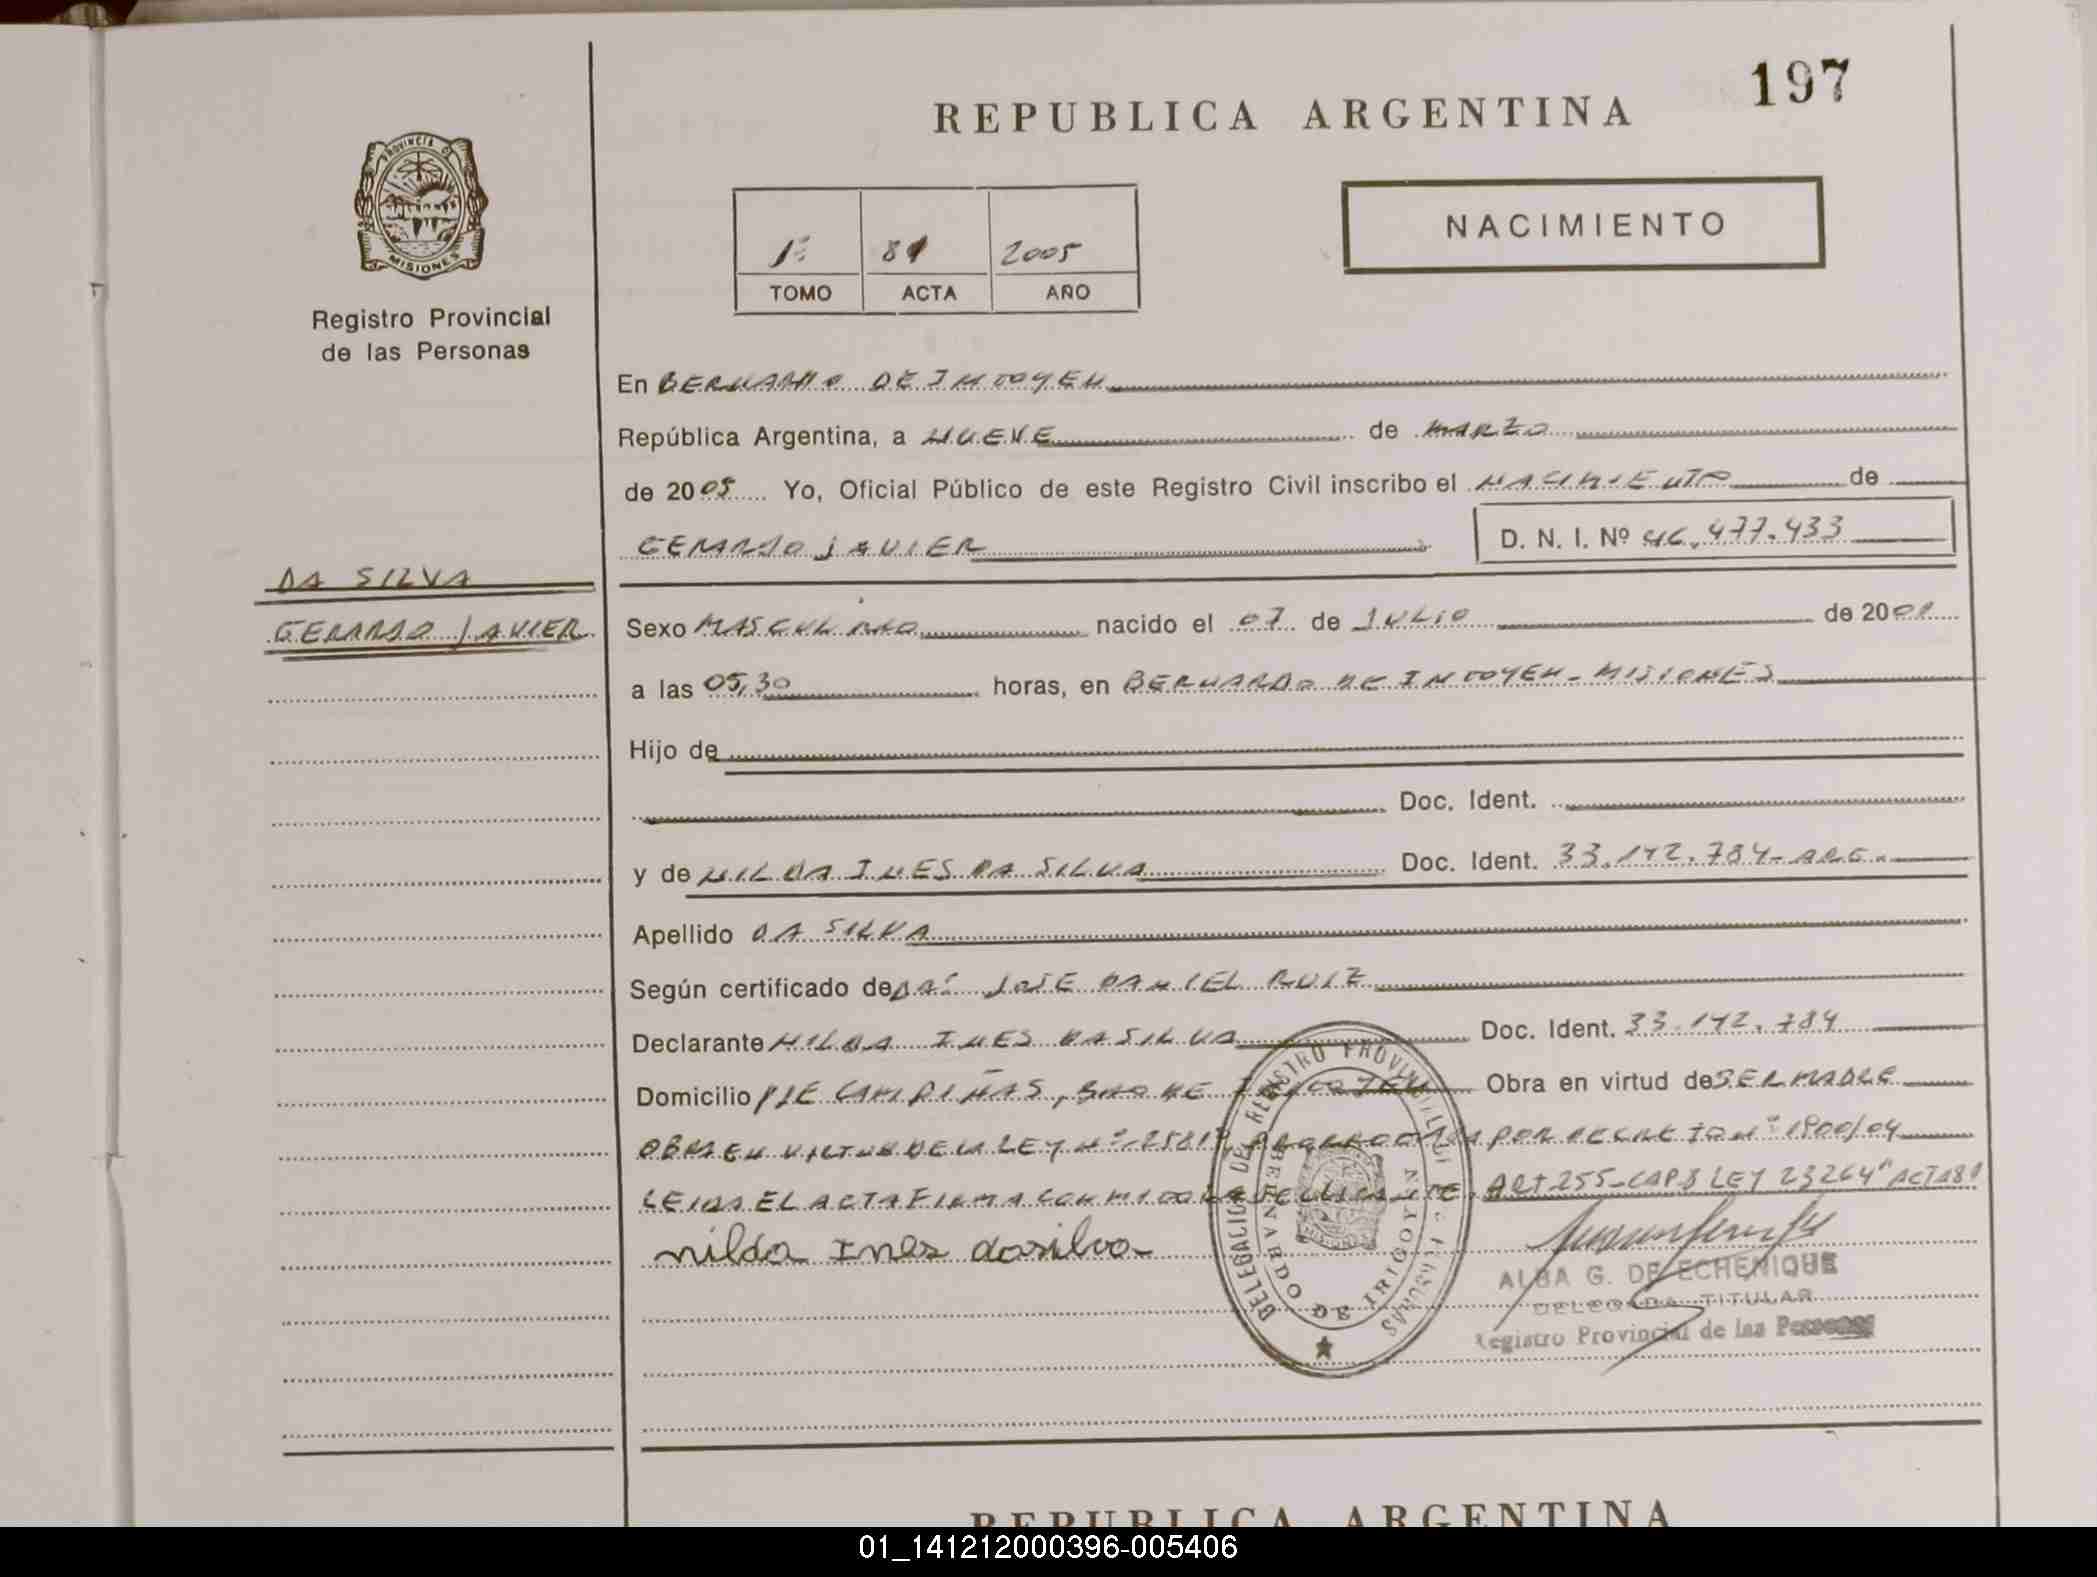 197
REPUBLICA ARGENTINA
PROVINCIA DE
MISIONES
Registro Provincial
de las Personas
NACIMIENTO
1º 81 2005
TOMO ACTA AÑO
En BERNARDO DE IRIGOYEN
República Argentina, a NUEVE de MARZO
de 2005 Yo, Oficial Público de este Registro Civil inscribo el NACIMIENTO de
GERARDO JAVIER D. N. I. Nº 46.477.433
DA SILVA
GERARDO JAVIER
Sexo MASCULINO nacido el 07 de JULIO de 200
a las 05,30 horas, en BERNARDO DE IRIGOYEN - MISIONES
Hijo de
Doc. Ident.
y de NILDA INES DA SILVA Doc. Ident. 33.142.784 - ARG.-
Apellido DA SILVA
Según certificado de DR. JOSE DANIEL RUIZ
Declarante NILDA INES DA SILVA Doc. Ident. 33.142.784
Domicilio PJE CAMPIÑAS, BDO DE IRIGOYEN Obra en virtud de SER MADRE
OBRA EN VIRTUD DE LA LEY Nº 25819 POR DECRETO Nº 1800/04
LEIDA EL ACTA FIRMA CONMIGO LA DECLARANTE. ART 255 - CAP 8 LEY 23264 ACTA 81
nilda Ines dasilva
ALBA G. DE ECHENIQUE
DELEGADA TITULAR
Registro Provincial de las Personas
DELEGACION DEL REGISTRO PROVINCIAL DE LAS PERSONAS
BERNARDO DE IRIGOYEN
REPUBLICA ARGENTINA
01_141212000396-005406